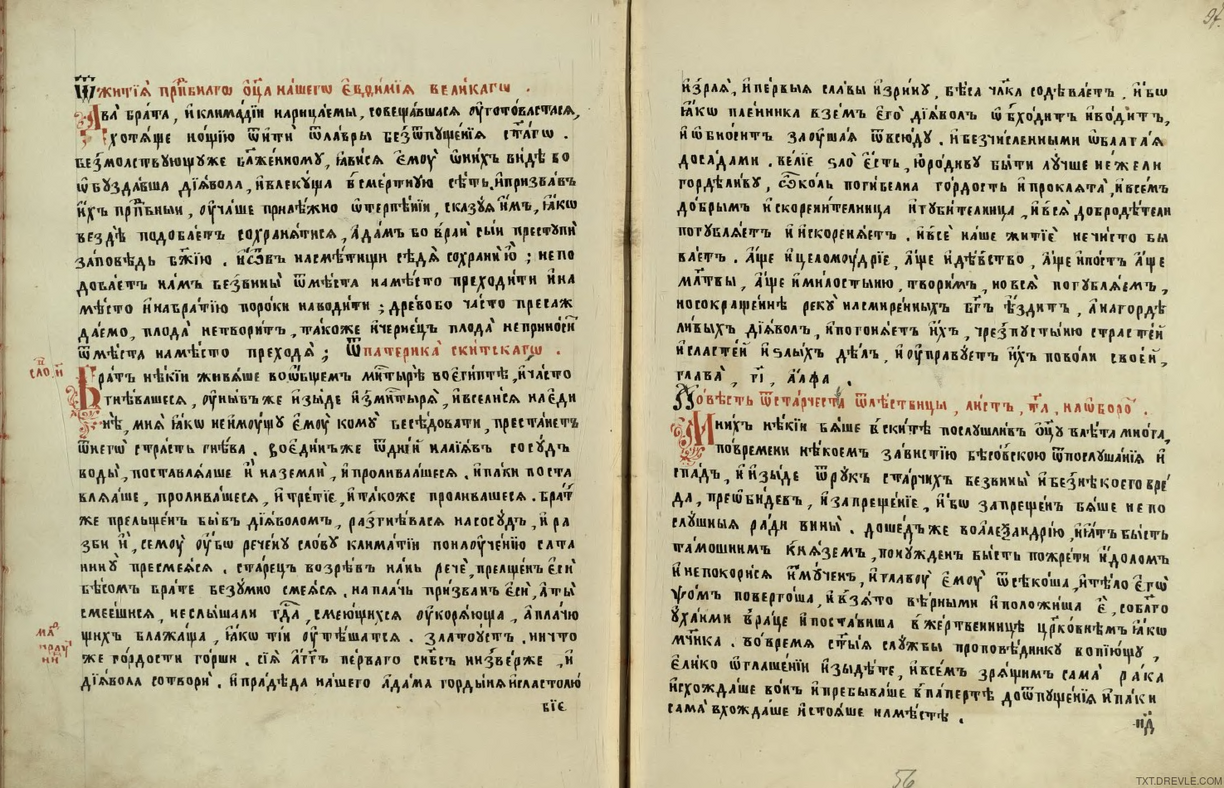 Ѿ житїѧ̀ прпⷣбнаго ѻц҃а нашегѡ є҆ѵѳимїѧ великагѡ .
Два̀ бра́та , и҆ климаді́й нарица́емы , совеща́вшасѧ ѹ҆гото́властасѧ,
хотѧ́ще но́щїю ѿи́ти ѿ ла́вры без̾ ѿпуще́нїѧ ст҃а́гѡ .
безмо́лствующу же бл҃же́нному , ꙗ҆ви́сѧ є҆мꙋ̀ ѡ҆ ни́хъ ви́дѣ бо
ѡ҆бузда́вша дїѧ́вола , и҆ влеку́ща в̾ сме́ртную сѣ́ть . и҆ призва́въ
и҆́хъ прпⷣбный , ѹ҆ча́ше прилѣ́жно ѡ҆ терпѣ́нїи , сказу́ѧ и҆̀мъ , ꙗ҆́кѡ
вездѣ̀ подоба́етъ сохранѧ́тисѧ , А҆да́мъ бо в̾ раѝ сы́й преступѝ
за́повѣдь бж҃їю . и҆ ѡ҆́въ на смѣ́тищи сѣдѧ̀ сохранѝ ю҆̀ ; не по
доба́етъ на́мъ без̾ вины̀ ѿ мѣ́ста на мѣ́сто преходи́ти и҆ на
мѣ́сто и҆ на бра́тїю поро́ки наводи́ти ; дре́во бо ча́сто пресаж
да́емо , плода̀ не твори́тъ , та́коже и҆ черне́цъ плода̀ не прино́сиⷮ
ѿ мѣ́ста на мѣ́сто преходѧ̀ ; Ѿ патерика̀ ски́тскагѡ .
сло , и҃
Бра́тъ нѣ́кїй живѧ́ше во ѻ҆́бщемъ мⷭ҇тырѣ̀ во є҆ги́птѣ , и҆ ча́сто
гнѣ́вашесѧ , ѹ҆ны́въ же и҆зы́де и҆з̾ мⷭ҇тырѧ̀ , и҆ всели́сѧ на є҆ди
нѣ̀ , мнѧ̀ ꙗ҆́кѡ не и҆мꙋ́щꙋ є҆мꙋ̀ кому̀ бесѣ́довати , преста́нетъ
ѿ негѡ̀ стра́сть гнѣ́ва . во є҆ди́н же ѿ дні́й налїѧ́въ сосу́дъ
воды̀ , поставлѧ́ше и҆̀ на землѝ , и҆ пролива́шесѧ . и҆ па́ки поста
влѧ́ше , пролива́шесѧ , и҆ тре́тїе , и҆ та́коже пролива́шесѧ . бра́т̾
же прельще́нъ бы́въ дїѧ́воломъ , разгнѣ́васѧ на сосу́дъ , и҆ ра
збѝ и҆̀ , семꙋ̀ ѹ҆́бѡ рече́ну сло́ву климаті́й по нлꙋче́нїю сата
нину̀ пресмеѧ́сѧ . ста́рецъ возрѣ́въ на́нь речѐ , прельще́нъ є҆сѝ
бѣ́сомъ бра́те безу́мно смеѧ́сѧ , на пла́чь при́званъ є҆сѝ , а҆ ты̀
смее́шисѧ , не слы́шали гдⷭ҇а , смею́щихсѧ ѹ҆корѧ́юща , а҆ пла́чю
щихъ блажа́ща , ꙗ҆́кѡ ті́и ѹ҆тѣ́шатсѧ . златоу́стъ . ничто́
же го́рдости го́рши . сїѧ̀ а҆́гг҃лъ пе́рваго с̾ нб҃съ низве́рже , и҆
дїѧ́вола сотворѝ . и҆ пра́дѣда на́шего А҆да́ма горды́нѧ и҆ сластолю́
бїе
и҆з̾ раѧ̀ , и҆ пе́рвыѧ сла́вы и҆зри́ну , бѣ́са чл҃ка содѣва́етъ . и҆́бѡ
ꙗ҆́кѡ плѣ́нника взе́мъ є҆го̀ дїѧ́волъ ѡ҆бхо́дитъ и҆ во́дитъ ,
и҆ ѡ҆бно́ситъ за ѹ҆́шаѧ ѿвсю́ду . и҆ безчи́сленными ѡ҆балга́ѧ
доса́дами . ве́лїе ѕло̀ є҆́сть , ю҆ро́диву бы́ти лу́чше не́жели
горде́ливу , ѽ ко́ль поги́белна го́рдость и҆ про́клѧта , и҆ все́мъ
до́брымъ и҆скорени́телница и҆ губи́телница , и҆ всѧ̀ доброде́тели
погублѧ́етъ и҆ и҆скоренѧ́етъ . и҆ всѐ на́ше житїѐ нечи́сто бы
ва́етъ . а҆́ще и҆ целомꙋ́дрїе , а҆́ще и҆ дѣ́вство , а҆́ще и҆ по́стъ а҆́ще
мл҃твы , а҆́ще и҆ ми́лостыню , твори́мъ , но всѧ̀ погублѧ́емъ ,
но сокраще́ннѣ реку̀ на смире́нныхъ бг҃ъ ѣ҆́здитъ , а҆ на гордѣ
ли́выхъ дїѧ́волъ , и҆ погонѧ́етъ и҆̀хъ , чрез̾ пусты́ню страсте́й
и҆ сласте́й и҆ ѕлы́хъ дѣ́лъ , и҆ ѹ҆правуе́тъ и҆̀хъ по во́ли свое́й ,
глава̀ , гі҃ , а҆́лфа .
По́вѣсть ѿ ста́рчества ѿ лѣ́ствицы , ли́стъ , тл҃ , на ѡ҆боро .
Мни́хъ нѣ́кїй бѧ́ше в̾ ски́тѣ послушли́въ ѻ҆ц҃у̀ в̾ лѣ́та мно́га ,
по вре́мени нѣ́коемъ за́вистїю бѣсо́вскою ѿ послуша́нїѧ и҆
спа́дъ , и҆ и҆зы́де ѿ ру́къ ста́рчихъ без̾ вины̀ и҆ без̾ нѣ́коего вре
да̀ , преѡби́девъ , и҆ запреще́нїе , и҆́бѡ запреще́нъ бѧ́ше непо
слу́шныѧ ра́ди вины̀ . доше́дъ же во алеѯандрі́ю , и҆ ꙗ҆́тъ бы́сть
та́мошнимъ кнѧ́земъ , пону́жденъ бы́сть пожре́ти и҆́доломъ
и҆ не покори́сѧ и҆ мꙋ́ченъ , и҆ главꙋ̀ є҆мꙋ̀ ѿсѣко́ша , и҆ тѣ́ло є҆гѡ̀
псо́мъ поверго́ша , и҆ взѧ́то вѣ́рными и҆ положи́ша є҆̀ , со благо
уха́нми в̾ ра́це и҆ поста́виша в̾ же́ртвенницѣ цр҃ко́внѣмъ ꙗ҆́кѡ
мч҃ника . во вре́мѧ ст҃ы́ѧ слу́жбы проповѣ́днику вопїю́щу ,
є҆ли́ко ѡ҆глаше́нїи и҆зыдѣ́те , и҆ всѣ́мъ зрѧ́щимъ сама̀ ра́ка
и҆схожда́ше во́нъ и҆ пребыва́ше в̾ па́пертѣ до ѿпуще́нїѧ и҆ па́ки
сама̀ вхожда́ше и҆ стоѧ́ше на мѣ́стѣ .
56
TXT.DREVLE.COM